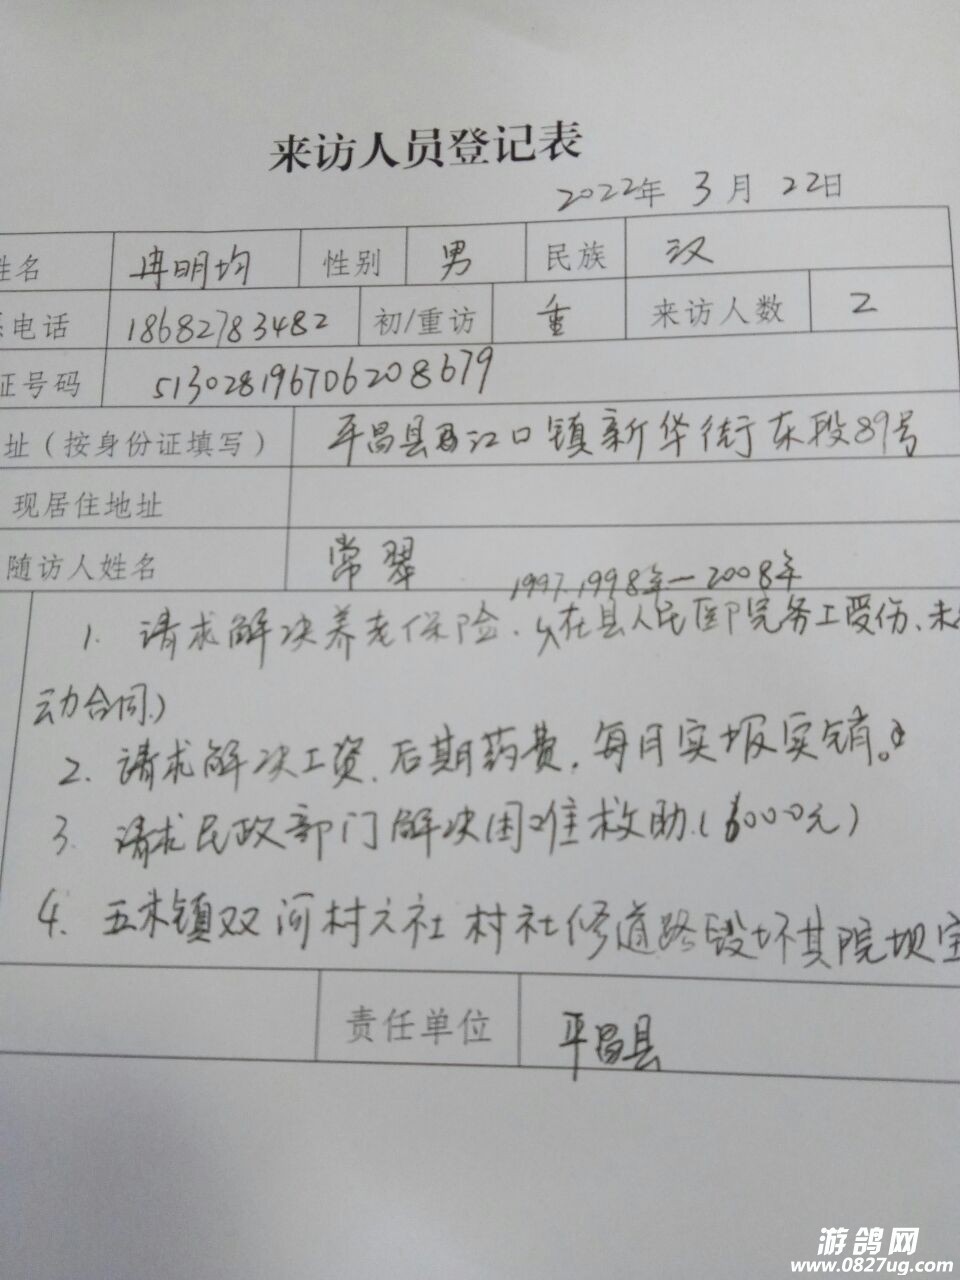 来访人员登记表
2022年 3月 22日
姓名 冉明均 性别 男 民族 汉
系电话 18682783482 初/重访 重 来访人数 2
证号码 513028196706208679
址（按身份证填写） 平昌县江口镇新华街东段89号
现居住地址
随访人姓名 常翠
1997.1998年—2008年
1. 请求解决养老保险. 在县人民医院务工受伤、未
动合同）
2. 请求解决工资、后期药费，每月实报实销。
3. 请求民政部门解决困难救助.（6000元）
4. 五木镇双河村六社 村社修道路毁坏其院坝
责任单位 平昌县
游鸽网
www.0827ug.com